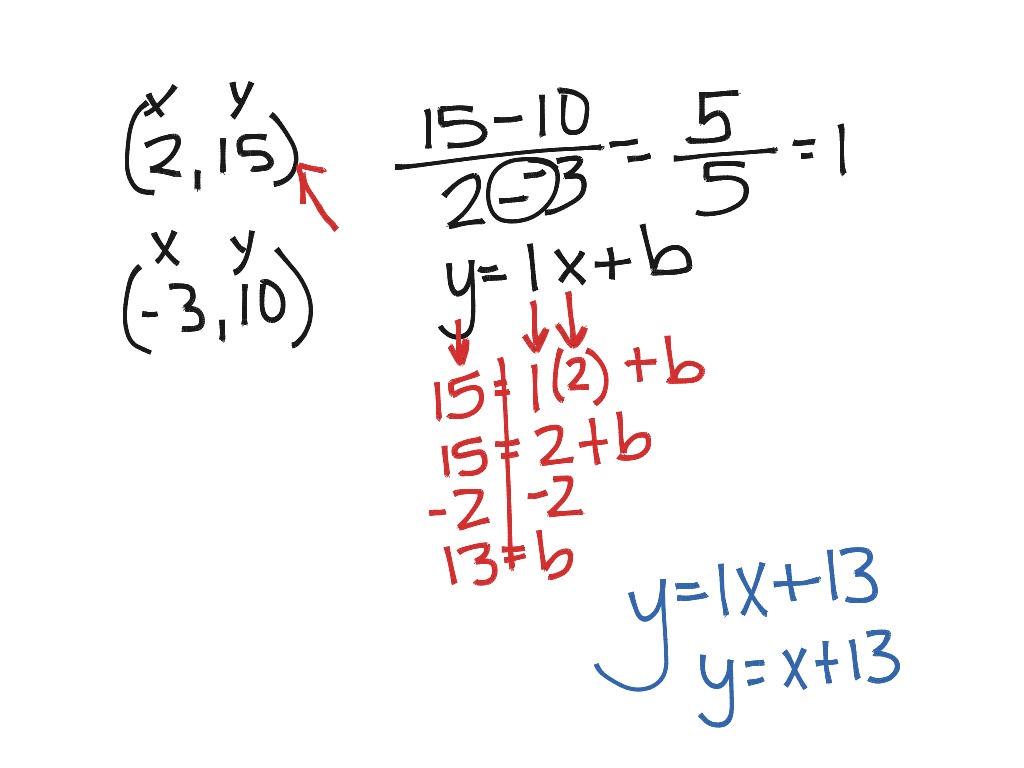 x y
(2, 15)
x y
(-3, 10)
15-10 / 2--3 = 5/5 = 1
y = 1x + b
15 = 1(2) + b
15 = 2 + b
-2 -2
13 = b
y = 1x + 13
y = x + 13